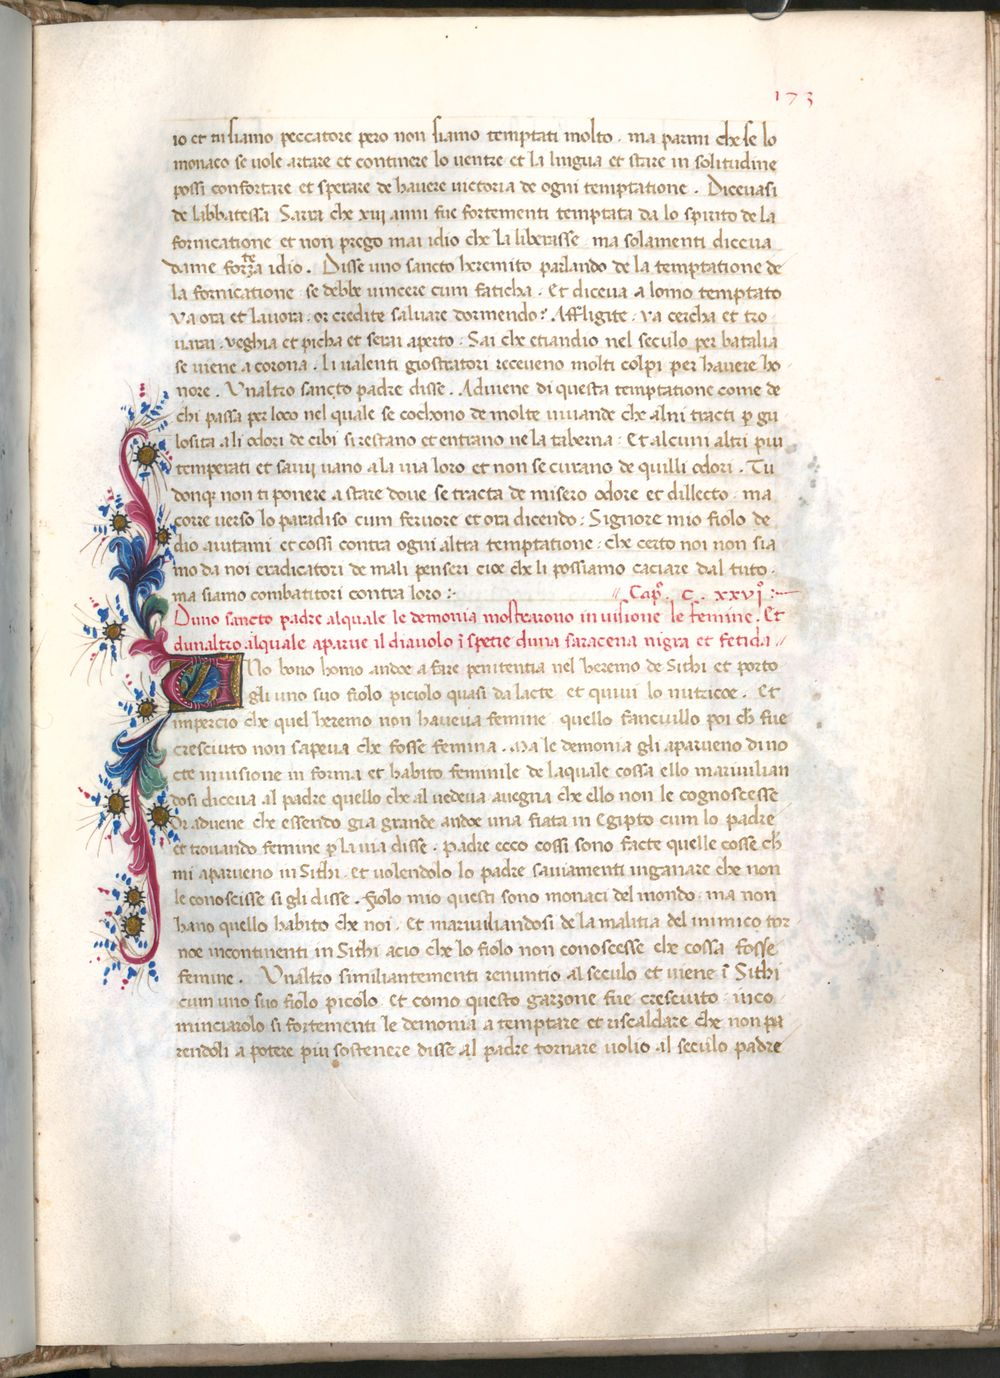 173
io et tu siamo peccatore pero non siamo temptati molto . ma parmi che se lo
monaco se uole artare et continere lo uentre et la lingua et stare in solitudine
possi confortare et sperare de hauere uictoria de ogni temptatione . Diceuasi
de labbatessa Sarra che xiij anni fue fortementi temptata da lo spirito de la
fornicatione et non prego mai idio che la liberasse ma solamenti diceua
dame forza idio . Disse uno sancto heremito parlando de la temptatione de
la fornicatione se debbe uincere cum faticha . Et diceua a lomo temptato
va ora et lauora . or credite saluare dormendo ? Affligite . va cercha et tro
uarai . veghia et picha et serai aperto . Sai che etiandio nel seculo per batalia
se uiene a corona . li ualenti giostratori receueno molti colpi per hauere ho
nore . Vnaltro sancto padre disse . Aduiene di questa temptatione come de
chi passa per loco nel quale se cochono de molte uiuande che alni tracti p gu
losita a li odori de cibi si restano et entrano ne la taberna . Et alcuni altri piu
temperati et sauij uano a la uia loro et non se curano de quilli odori . Tu
donq non ti ponere a stare doue se tracta de misero odore et dillecto . ma
corre uerso lo paradiso cum feruore et ora dicendo : Signore mio fiolo de
dio aiutami et cossi contra ogni altra temptatione . che certo noi non sia
mo da noi eradicatori de mali penseri cioe che li possiamo caciare dal tuto .
ma siamo combatitori contra loro :- // Cap̊. C. xxvi̊ :-
Duno sancto padre alquale le demonia mostrarono in uisione le femine . Et
dunaltro alquale aparue il diauolo ī spetie duna saracena nigra et fetida //
VNo bono homo andoe a fare penitentia nel heremo de Sithi et porto
gli uno suo fiolo piciolo quasi da lacte et quiui lo nutricoe . Et
impercio che quel heremo non haueua femine quello fanciullo poi ch̄ fue
cresciuto non sapeua che fosse femina . Ma le demonia gli aparueno di no
cte in uisione in forma et habito feminile de laquale cossa ello marauilian
dosi diceua al padre quello che al uedeua auegna che ello non le cognoscesse
Or aduene che essendo gia grande andoe una fiata in Egipto cum lo padre
et trouando femine p̄ la uia disse . padre ecco cossi sono facte quelle cosse ch̄
mi aparueno in Sithi . et volendolo lo padre sauiamenti inganare che non
le conoscisse si gli disse . Fiolo mio questi sono monaci del mondo . ma non
hano quello habito che noi . Et marauiliandosi de la malitia del inimico tor
noe incontinenti in Sithi acio che lo fiolo non conoscesse che cossa fosse
femine . Vnaltro similiantementi renuntio al seculo et uiene ī Sithi
cum uno suo fiolo picolo . et como questo garzone fue cresciuto . inco
minciarolo si fortementi le demonia a temptare et riscaldare che non pa
rendoli a potere piu sostenere disse al padre tornare uolio al seculo padre